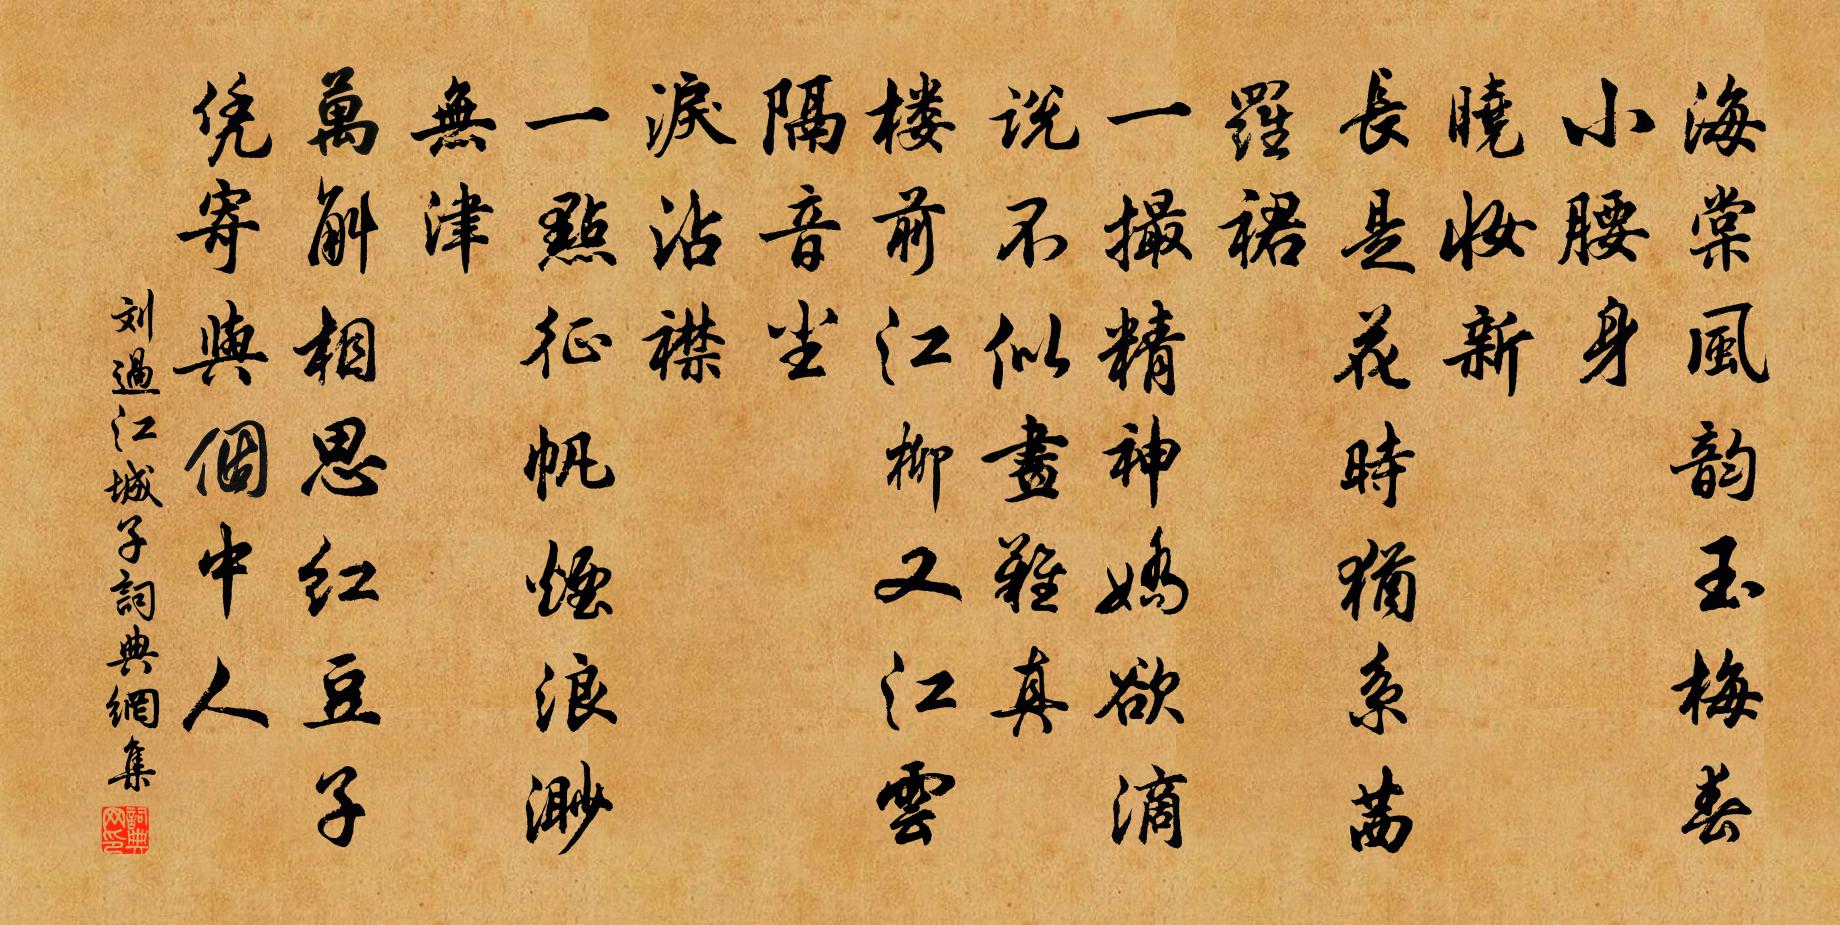 海棠風韵玉梅春
小腰身
曉妝新
長是花時猶系茜
羅裙
一撮精神嬌欲滴
説不似畫難真
楼前江柳又江雲
隔音尘
淚沾襟
一點征帆煙浪渺
無津
萬斛相思红豆子
凭寄與個中人
刘過江城子詞典網集
詞典网印